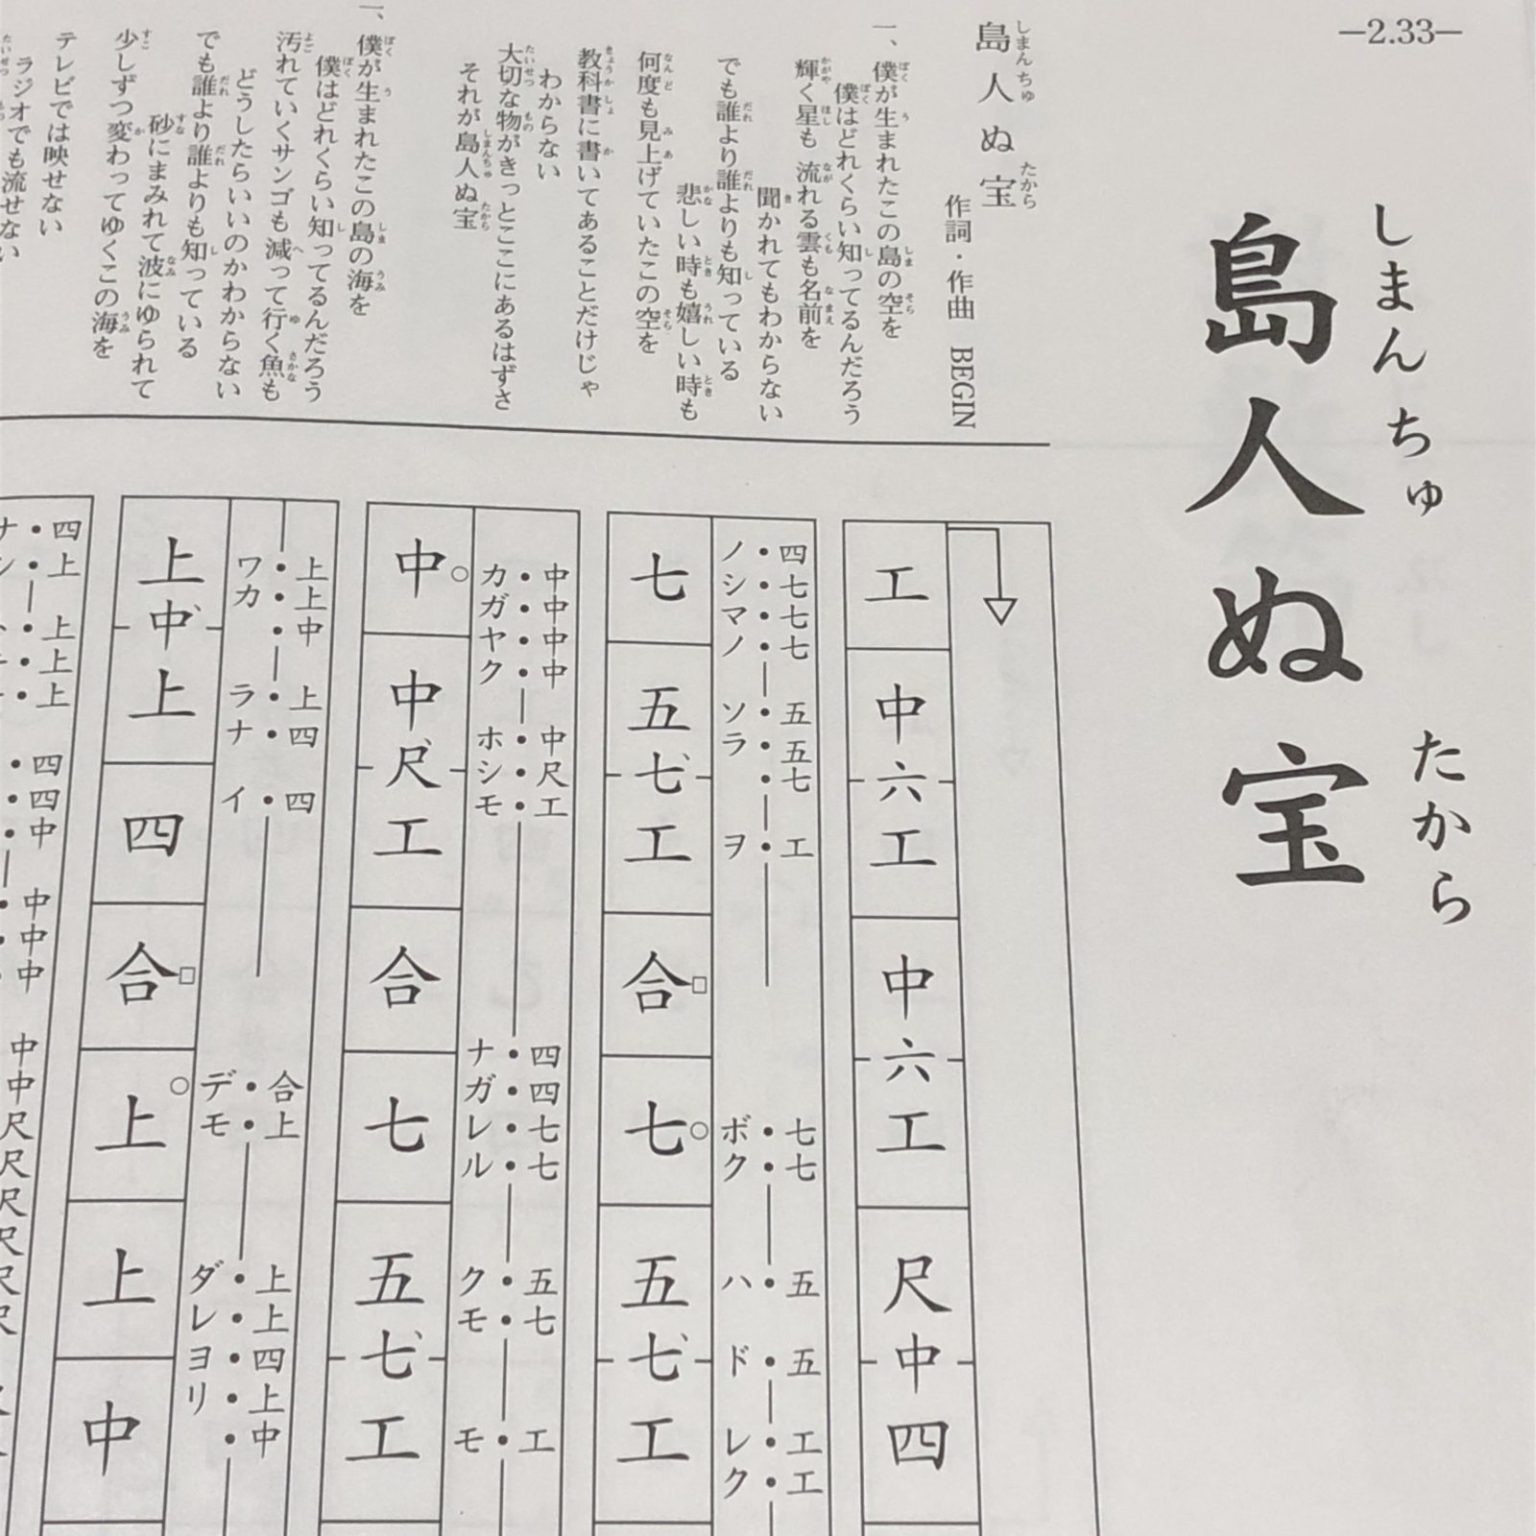 ―2.33―
しまんちゅ たから
島人ぬ宝
しまんちゅ たから
島人ぬ宝
作詞・作曲 BEGIN
一、僕が生まれたこの島の空を
僕はどれくらい知ってるんだろう
輝く星も 流れる雲も名前を
聞かれてもわからない
でも誰より誰よりも知っている
悲しい時も嬉しい時も
何度も見上げていたこの空を
教科書に書いてあることだけじゃ
わからない
大切な物がきっとここにあるはずさ
それが島人ぬ宝
一、僕が生まれたこの島の海を
僕はどれくらい知ってるんだろう
汚れていくサンゴも 減って行く魚も
どうしたらいいのかわからない
でも誰より誰よりも知っている
砂にまみれて波にゆられて
少しずつ変わってゆくこの海を
テレビでは映せない
ラジオでも流せない
工中六工中六工尺中四
四七七七五五七工七七五五工工
ノシマノソラヲボクハドレク
七五七工合七五七工
中中中中中尺工四四七七五七工
カガヤクホシモナガレルクモモ
中中尺工合七五七工
上上中上四四合上上上四上中
ワカラナイデモダレヨリ
上中上四合上上中
四上上上上四四中中中中中中尺尺尺尺尺尺